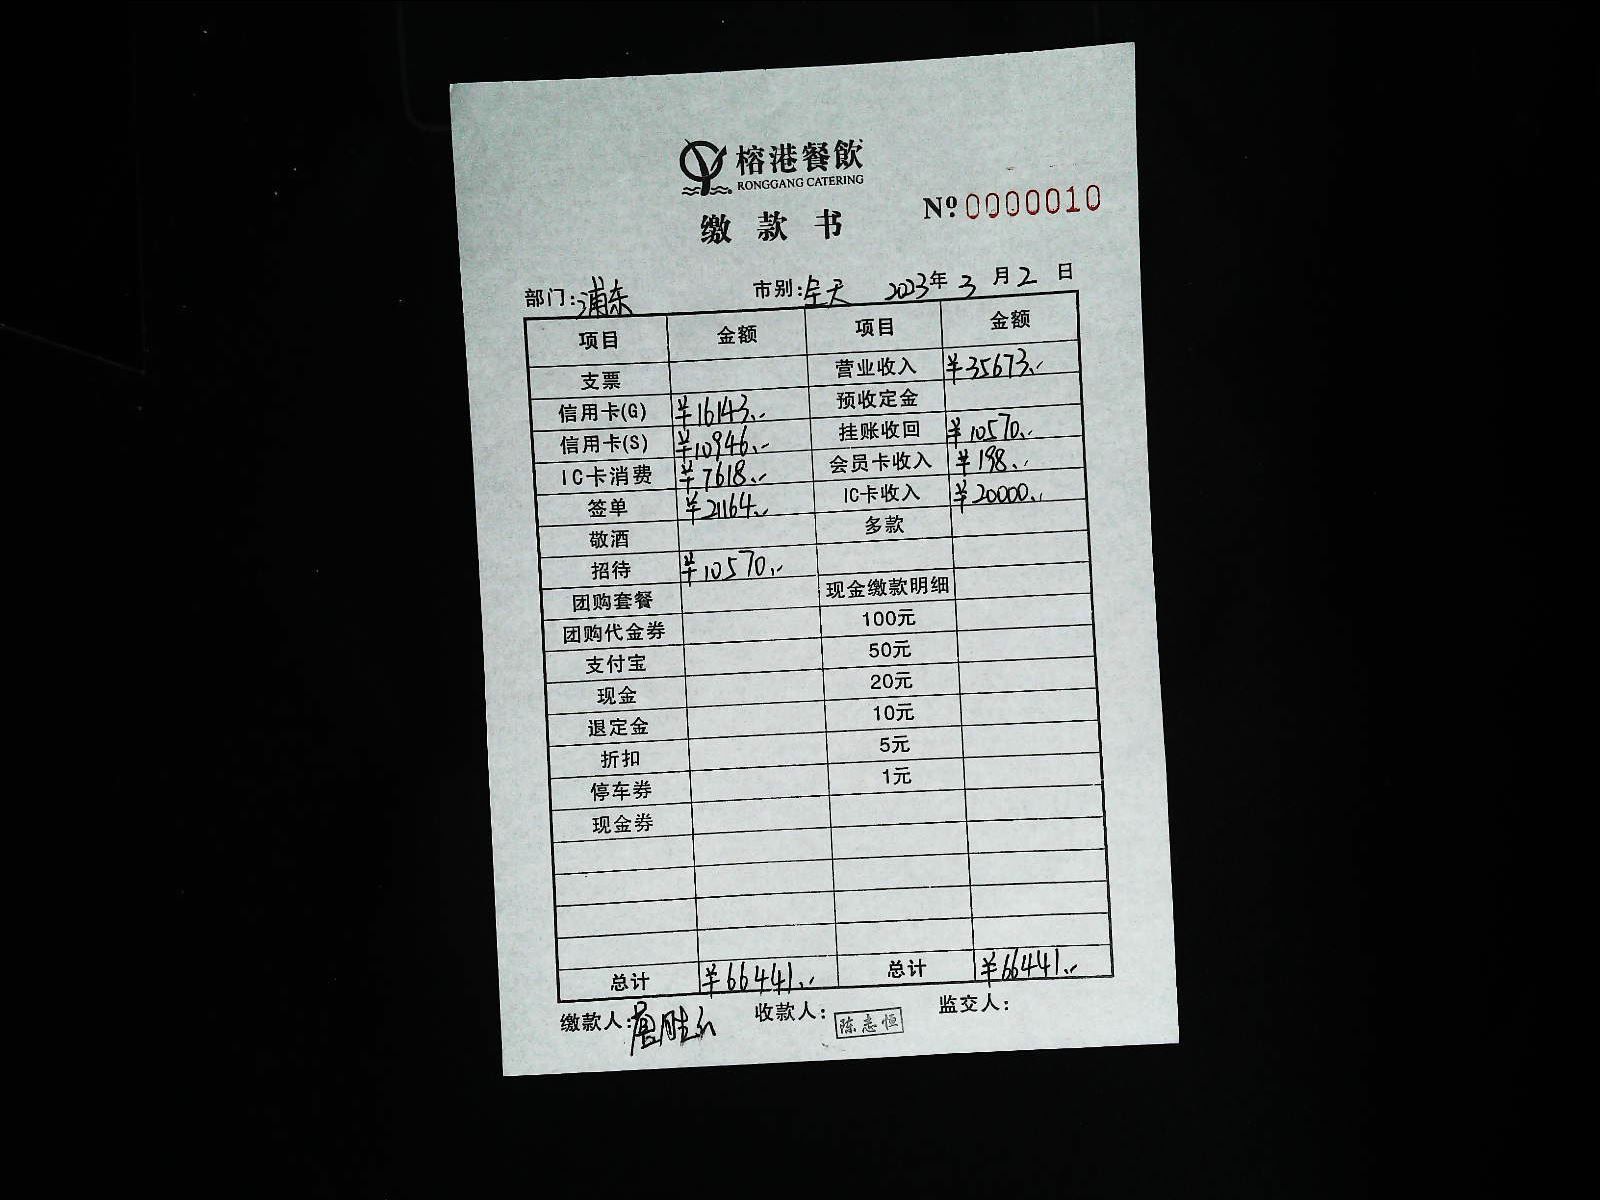 榕港餐飲
RONGGANG CATERING
缴款书
Nº 0000010
部门:浦东 市别:全天 2023年3月2日
项目 金额 项目 金额
支票 营业收入 ¥35673.-
信用卡(G) ¥16143.- 预收定金
信用卡(S) ¥10946.- 挂账收回 ¥10570.-
IC卡消费 ¥7618.- 会员卡收入 ¥198.-
签单 ¥21164.- IC卡收入 ¥20000.-
敬酒 多款
招待 ¥10570.-
团购套餐 现金缴款明细
团购代金券 100元
支付宝 50元
现金 20元
退定金 10元
折扣 5元
停车券 1元
现金券
总计 ¥66441.- 总计 ¥66441.-
缴款人: 收款人:陈志恒 监交人: